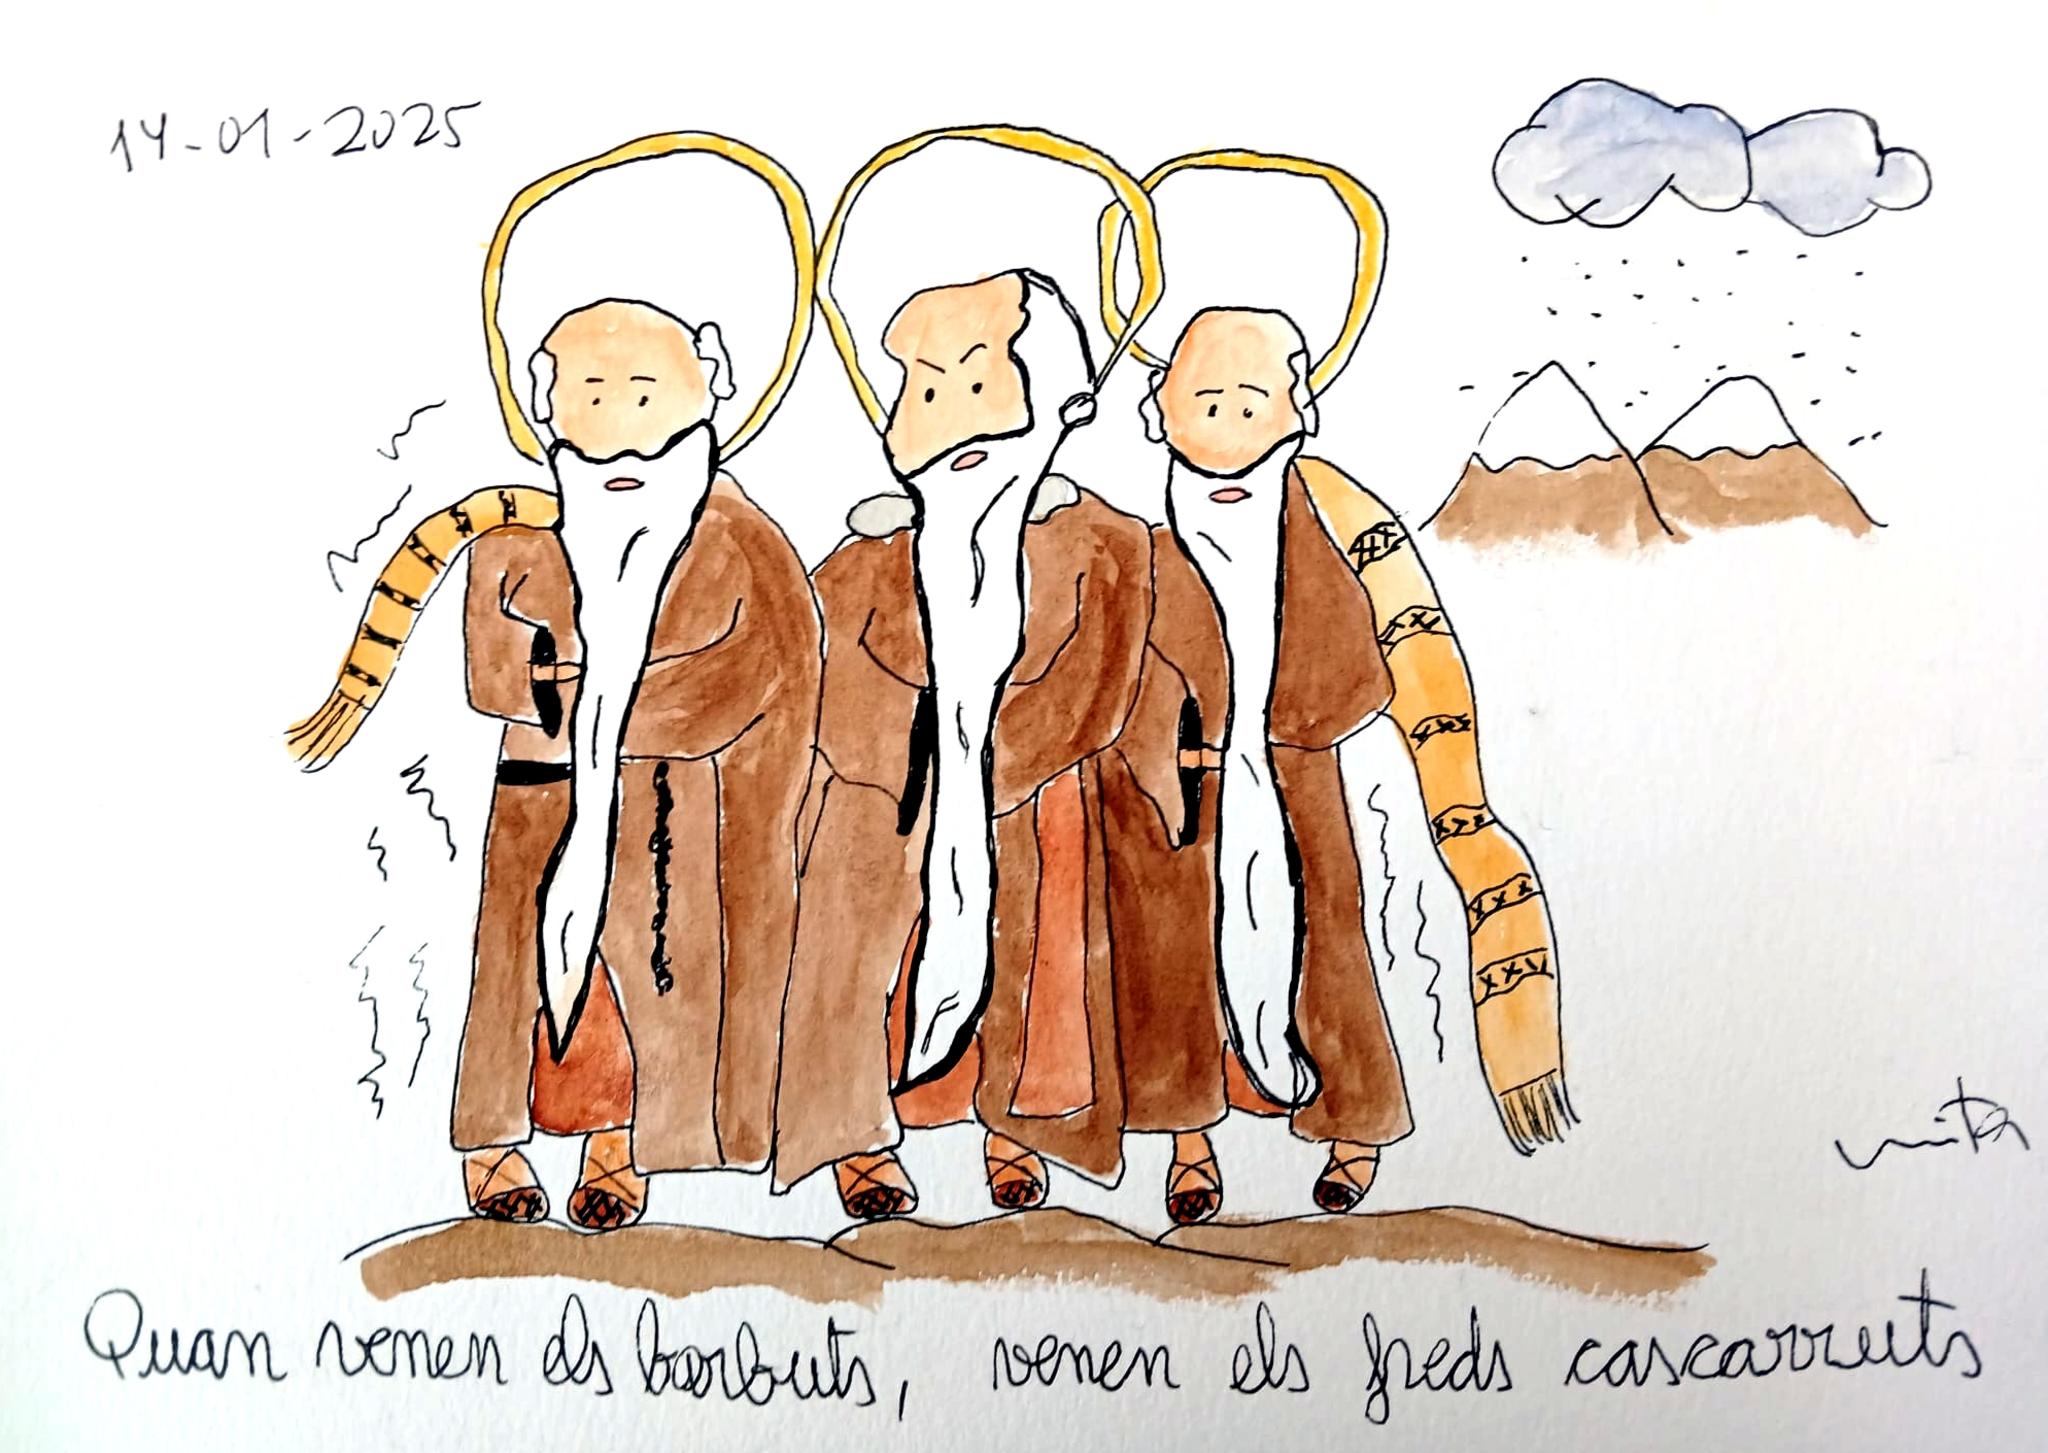 14-01-2025
Quan venen els barbuts, venen els freds cascarruts